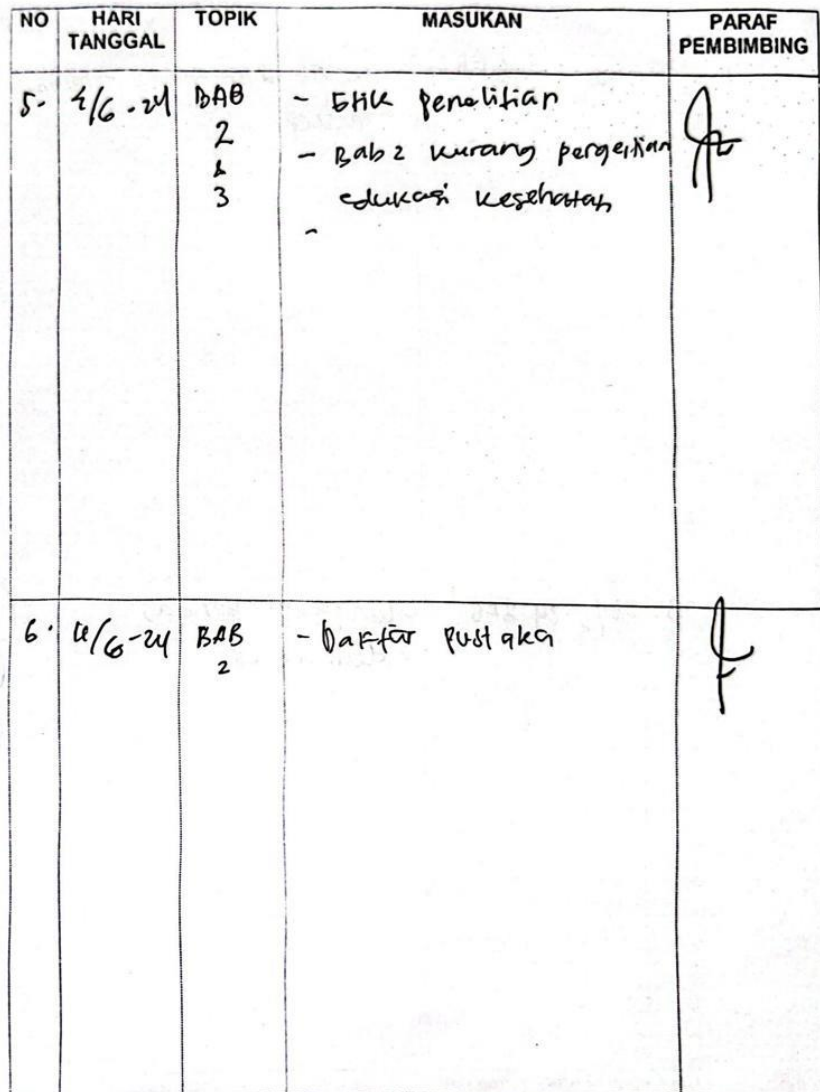 NO HARI TANGGAL TOPIK MASUKAN PARAF PEMBIMBING
5. BAB - Etik penelitian
2 - Bab 2 kurang pengertian
&
3 edukasi kesehatan
-
6. BAB - Daftar pustaka
2